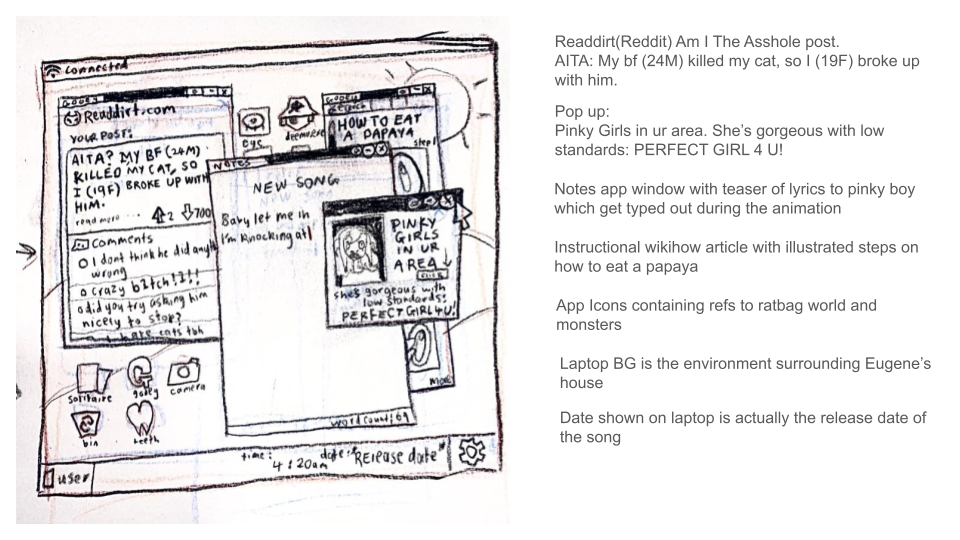 Connected
Readdirt.com
YOUR POST:
AITA? MY BF (24M)
KILLED MY CAT, SO
I (19F) BROKE UP WITH
HIM.
read more ...
2
700
Comments
I dont think he did anyth
wrong
crazy b1tch!1!!
did you try asking him
nicely to stop?
I hate cats tbh
eye
HOW TO EAT
A PAPAYA
step 1
NOTES
NEW SONG
Baby let me in
I'm knocking at
PINKY
GIRLS
IN UR
AREA
CLICK
she's gorgeous with
low standards:
PERFECT GIRL 4 U!
more
word count: 69
solitaire
gooey
camera
bin
teeth
user
time:
4:20am
date:
"Release date"
Readdirt(Reddit) Am I The Asshole post.
AITA: My bf (24M) killed my cat, so I (19F) broke up
with him.
Pop up:
Pinky Girls in ur area. She's gorgeous with low
standards: PERFECT GIRL 4 U!
Notes app window with teaser of lyrics to pinky boy
which get typed out during the animation
Instructional wikihow article with illustrated steps on
how to eat a papaya
App Icons containing refs to ratbag world and
monsters
Laptop BG is the environment surrounding Eugene's
house
Date shown on laptop is actually the release date of
the song